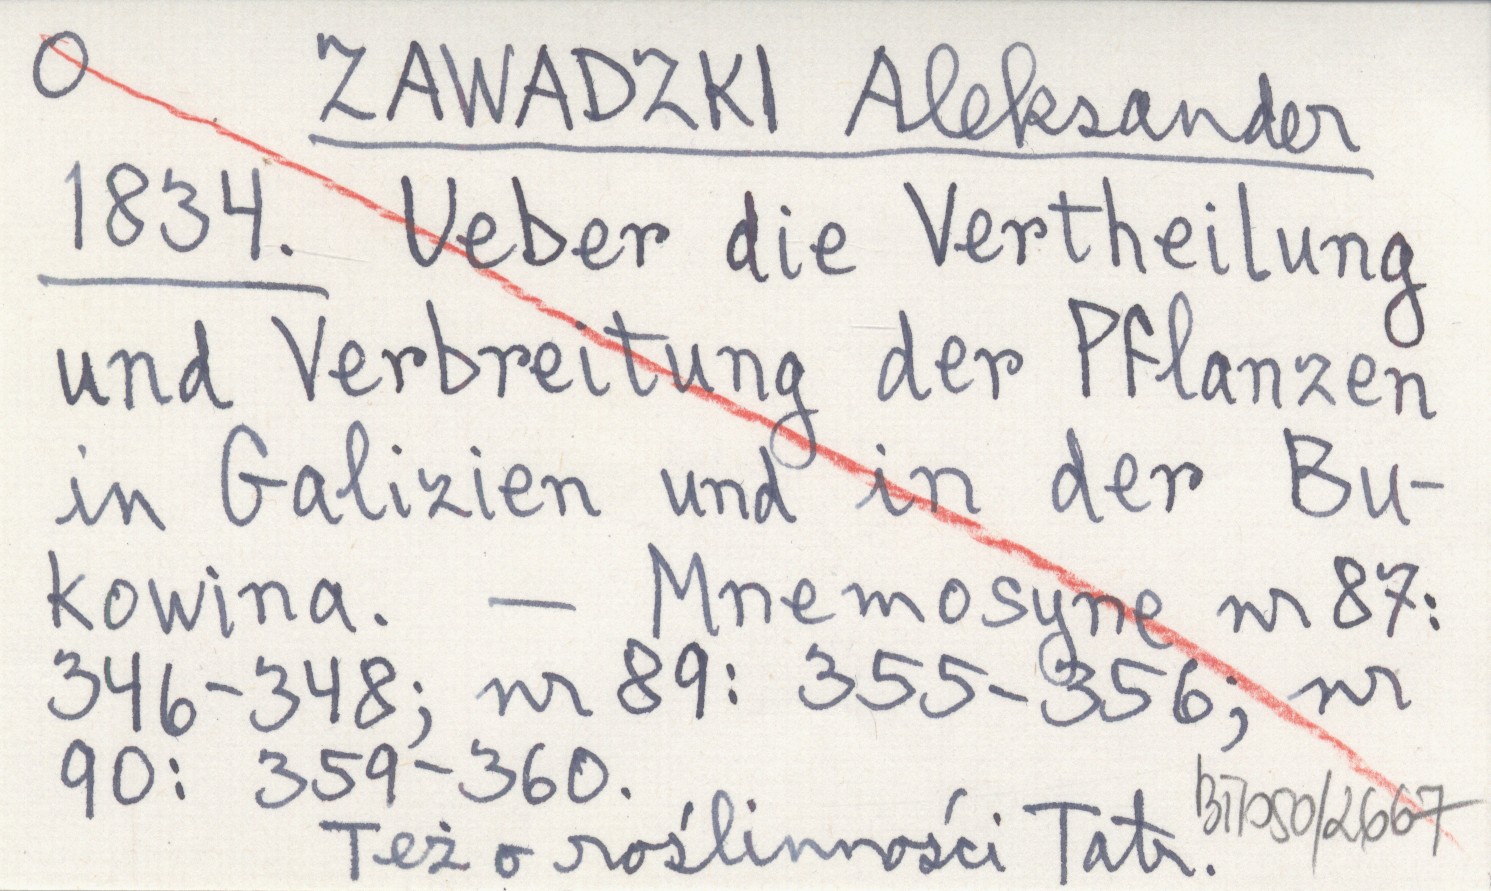 O ZAWADZKI Aleksander
1834. Ueber die Vertheilung
und Verbreitung der Pflanzen
in Galizien und in der Bu-
kowina. — Mnemosyne nr 87:
346-348; nr 89: 355-356; nr
90: 359-360.
Też o roślinności Tatr.